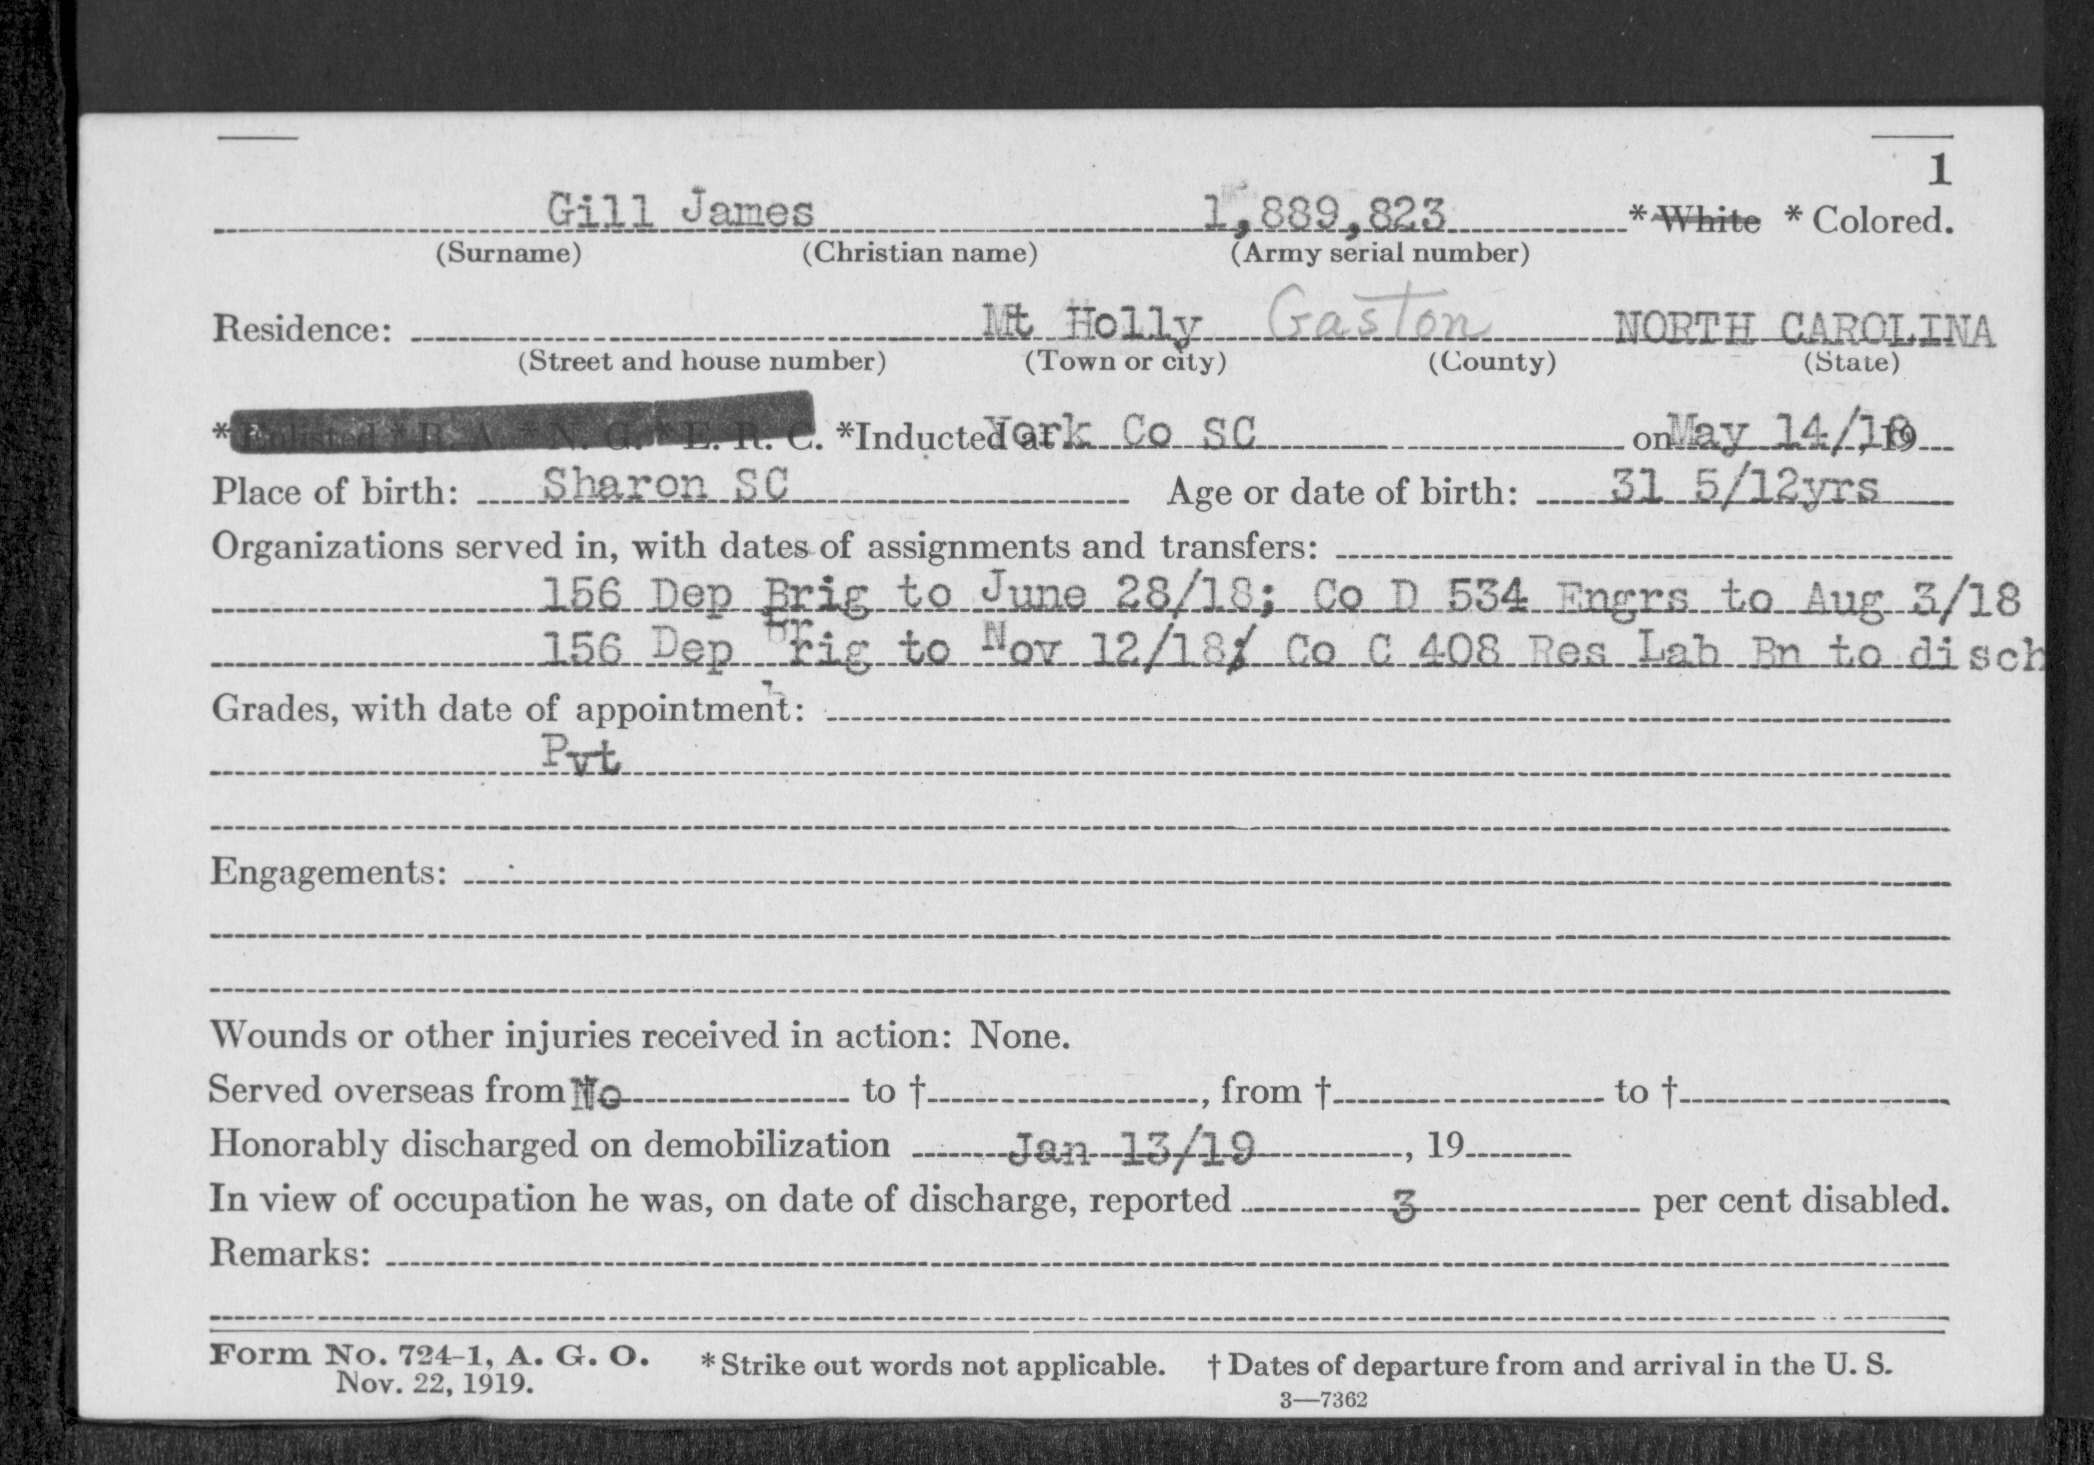 1
Gill James 1,889,823 * White * Colored.
(Surname) (Christian name) (Army serial number)
Residence: Mt Holly Gaston NORTH CAROLINA
(Street and house number) (Town or city) (County) (State)
* Enlisted * R. A. * N. G. * E. R. C. *Inducted at York Co SC on May 14/18, 19
Place of birth: Sharon SC Age or date of birth: 31 5/12yrs
Organizations served in, with dates of assignments and transfers:
156 Dep Brig to June 28/18; Co D 534 Engrs to Aug 3/18
156 Dep Brig to Nov 12/18; Co C 408 Res Lab Bn to disch
Grades, with date of appointment:
Pvt
Engagements:
Wounds or other injuries received in action: None.
Served overseas from † No to †, from † to †
Honorably discharged on demobilization Jan 13/19, 19
In view of occupation he was, on date of discharge, reported 3 per cent disabled.
Remarks:
Form No. 724-1, A. G. O. * Strike out words not applicable. † Dates of departure from and arrival in the U. S.
Nov. 22, 1919.
3—7362